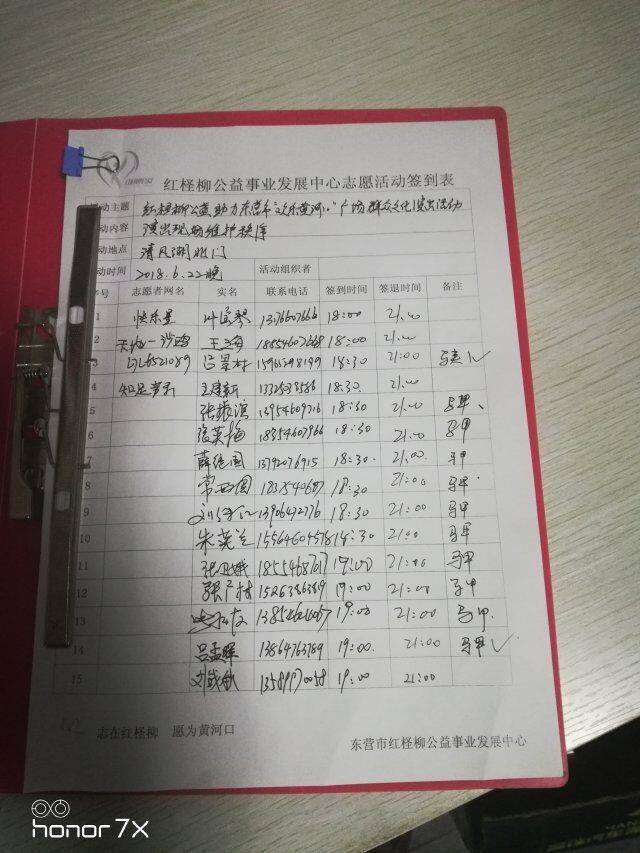 红柽柳公益事业发展中心志愿活动签到表
活动主题 红柽柳公益助力东营市"欢乐黄河口"广场群众文化演出活动
动内容 演出现场维护秩序
动地点 清风湖北门
动时间 2018.6.22晚 活动组织者
序号 志愿者网名 实名 联系电话 签到时间 签退时间 备注
1 快乐星 18:00 21:00
2 天地一沙鸥 王海 18554607668 18:00 21:00
3 吕景村 15965498199 18:30 21:00
4 知足常乐 王建新 18:30 21:00
5 张振滨 15954609716 18:30 21:00 马甲
6 张英梅 18354607966 18:30 21:00 马甲
7 薛德国 13792076915 18:30 21:00 马甲
8 常西国 18:30 21:00 马甲
9 13906472776 18:30 21:00 马甲
10 朱英兰 15564604578 18:30 21:00 马甲
11 19:00 21:00 马甲
12 张广村 19:00 21:00 马甲
13 19:00 21:00 马甲
14 吕孟晖 13864763789 19:00 21:00 马甲 ✓
15 19:00 21:00
志在红柽柳 愿为黄河口
东营市红柽柳公益事业发展中心
honor 7X